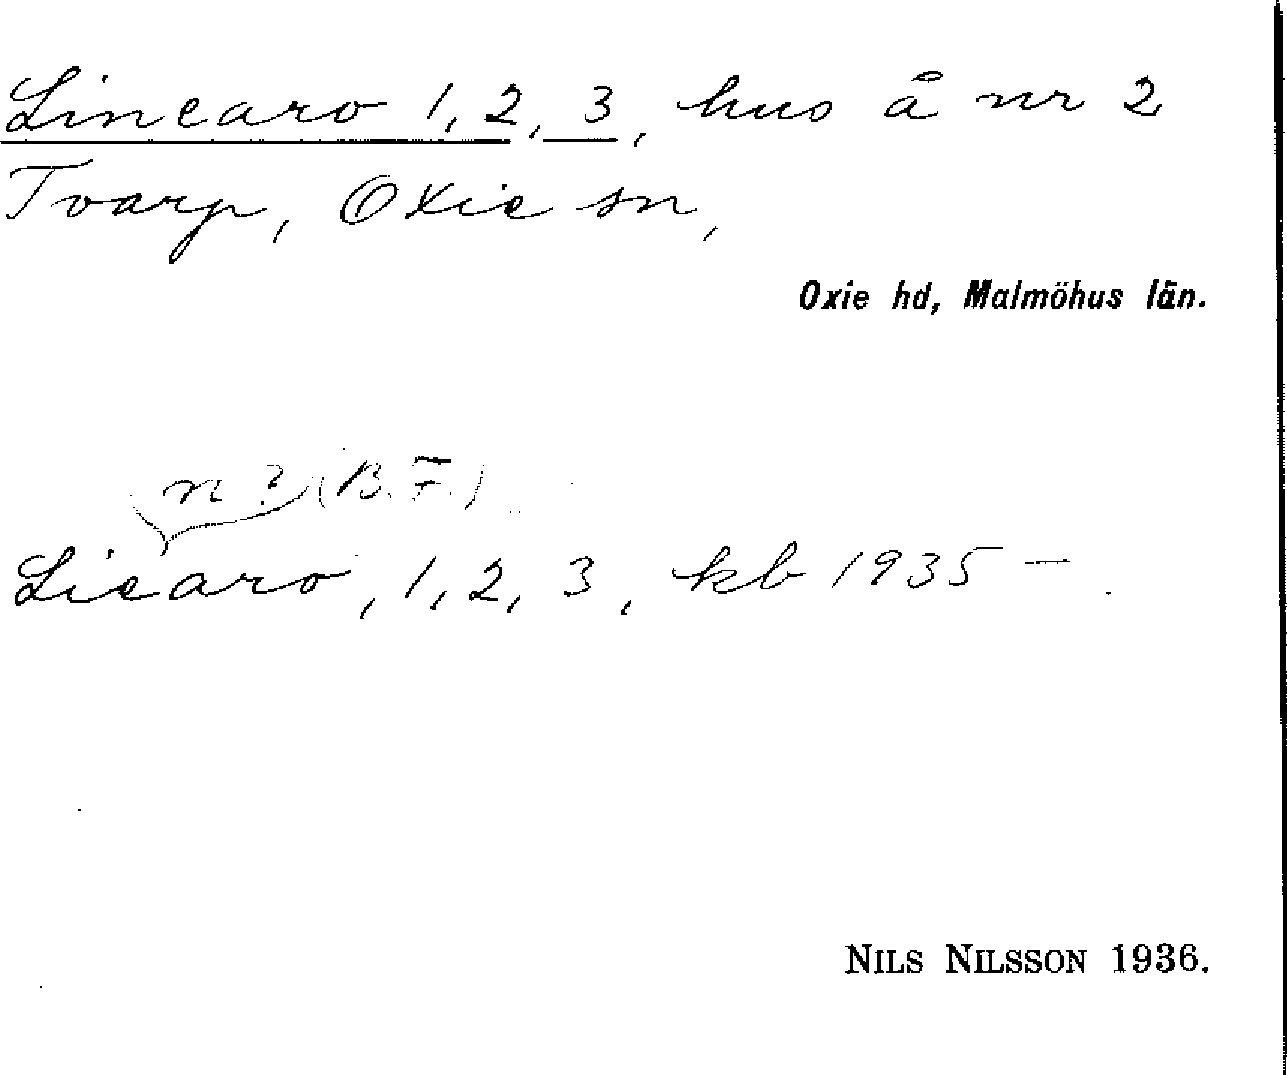 Linearo 1, 2, 3, hus å nr 2
Tvarp, Oxie sn,
Oxie hd, Malmöhus län.
n? (B. F.)
Liearo, 1, 2, 3, kb 1935 –.
NILS NILSSON 1936.